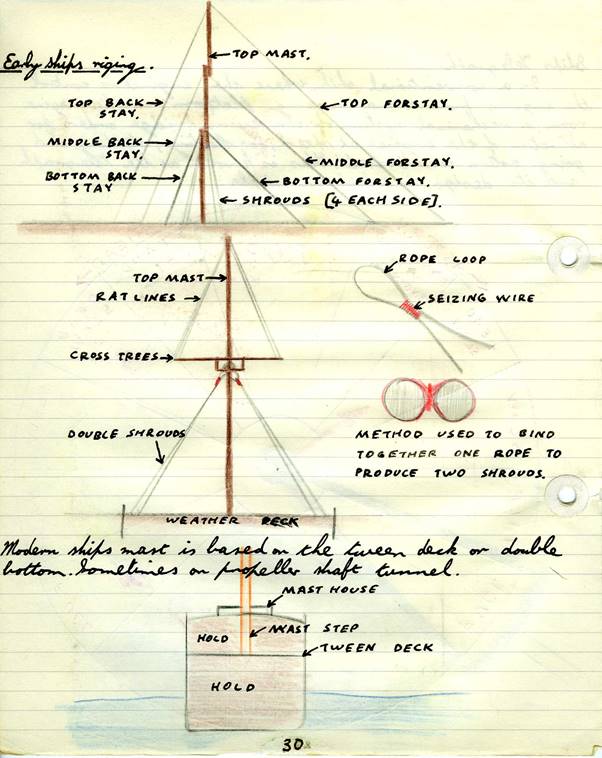 Early ships riging.
TOP MAST.
TOP BACK
STAY.
TOP FORSTAY.
MIDDLE BACK
STAY.
MIDDLE FORSTAY.
BOTTOM BACK
STAY
BOTTOM FORSTAY.
SHROUDS [4 EACH SIDE].
TOP MAST
RAT LINES
CROSS TREES
DOUBLE SHROUDS
WEATHER DECK
ROPE LOOP
SEIZING WIRE
METHOD USED TO BIND
TOGETHER ONE ROPE TO
PRODUCE TWO SHROUDS.
Modern ships mast is based on the tween deck or double
bottom. Sometimes on propeller shaft tunnel.
MAST HOUSE
HOLD
MAST STEP
TWEEN DECK
HOLD
30